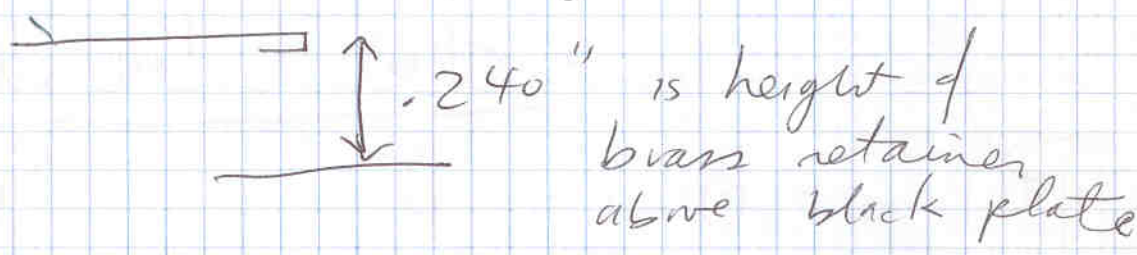 .240" is height of
brass retainer
above black plate